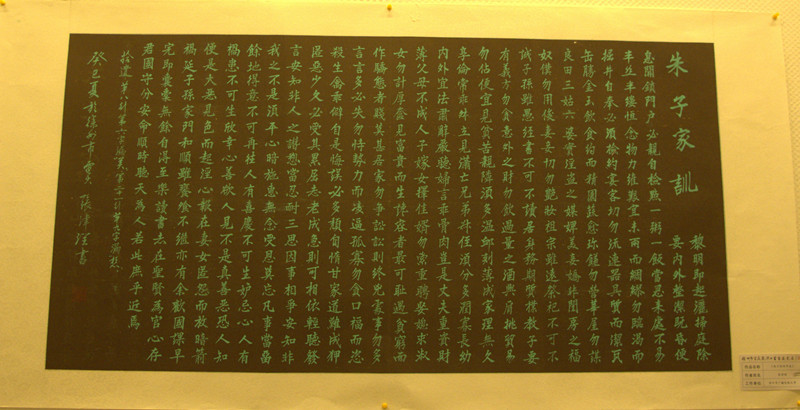 朱子家訓
黎明即起灑掃庭除
要内外整潔既昏便
息關鎖門户必親自檢點一粥一飯當思來處不易
半丝半縷恒念物力維艱宜未雨而綢繆勿臨渴而
掘井自奉必須檢約宴客切勿流連器具質而潔瓦
缶勝金玉飲食約而精園蔬愈珍饈勿營華屋勿謀
良田三姑六婆實淫盗之媒婢美妾嬌非閨房之福
奴僕勿用俊美妻妾切勿艷妝祖宗雖遠祭祀不可不
誠子孫雖愚經書不可不讀居身務期質樸教子要
有義方勿貪意外之財勿飲過量之酒與肩挑貿易
勿佔便宜見貧苦親鄰須多溫卹刻薄成家理無久
享倫常乖舛立見消亡兄弟叔侄須分多潤寡長幼
内外宜法肅辭嚴聽婦言乖骨肉豈是丈夫重貲財
薄父母不成人子嫁女擇佳婿勿索重聘娶媳求淑
女勿計厚奩見富貴而生諂容者最可耻遇貧窮而
作驕態者賤莫甚居家勿爭訟訟則終凶處事勿多
言言多必失勿恃勢力而凌逼孤寡勿貪口福而恣
殺生禽乖僻自是悔誤必多頹惰自甘家道難成狎
匿惡少久必受其累居志老成急則可相依輕聽發
言安知非人之譖愬當忍耐三思因事相爭安知非
我之不是須平心暗施惠無念受恩莫忘凡事當留
餘地得意不可再往人有喜慶不可生妒忌心人有
禍患不可生欣幸心善欲人見不是真善惡恐人知
便是大惡見色而起淫心報在妻女匿怨而放暗箭
禍延子孫家門和順雖饔飧不繼亦有餘歡國課早
完即囊橐無餘自得至樂讀書志在聖賢爲官心存
君國守分安命順時聽天爲人若此庶乎近焉
拾遺
癸巳夏於徐州市 張津 書